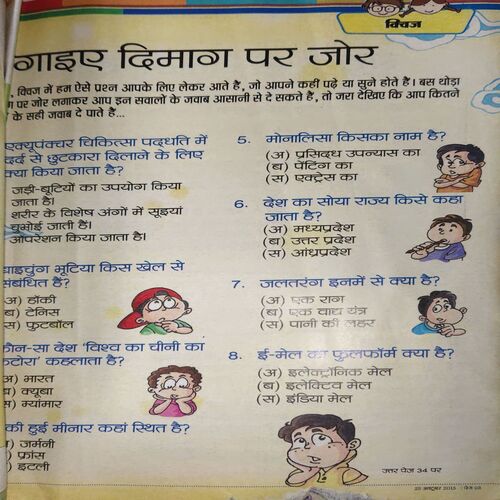 क्विज
गाइए दिमाग पर जोर
क्विज में हम ऐसे प्रश्न आपके लिए लेकर आते हैं, जो आपने कहीं पढ़े या सुने होते हैं। बस थोड़ा
पर जोर लगाकर आप इन सवालों के जवाब आसानी से दे सकते हैं, तो जरा देखिए कि आप कितने
के सही जवाब दे पाते हैं...
एक्यूपंक्चर चिकित्सा पद्धति में
दर्द से छुटकारा दिलाने के लिए
क्या किया जाता है?
जड़ी-बूटियों का उपयोग किया
जाता है।
शरीर के विशेष अंगों में सूइयां
चुभोई जाती हैं।
ऑपरेशन किया जाता है।
बाइचुंग भूटिया किस खेल से
संबंधित हैं?
अ) हॉकी
ब) टेनिस
स) फुटबॉल
कौन-सा देश 'विश्व का चीनी का
कटोरा' कहलाता है?
अ) भारत
ब) क्यूबा
स) म्यांमार
की हुई मीनार कहां स्थित है?
) जर्मनी
) फ्रांस
) इटली
5. मोनालिसा किसका नाम है?
(अ) प्रसिद्ध उपन्यास का
(ब) पेंटिंग का
(स) एक्ट्रेस का
6. देश का सोया राज्य किसे कहा
जाता है?
(अ) मध्यप्रदेश
(ब) उत्तर प्रदेश
(स) आंध्रप्रदेश
7. जलतरंग इनमें से क्या है?
(अ) एक राग
(ब) एक वाद्य यंत्र
(स) पानी की लहर
8. ई-मेल का फुलफॉर्म क्या है?
(अ) इलेक्ट्रॉनिक मेल
(ब) इलेक्टिव मेल
(स) इंडिया मेल
उत्तर पेज 34 पर